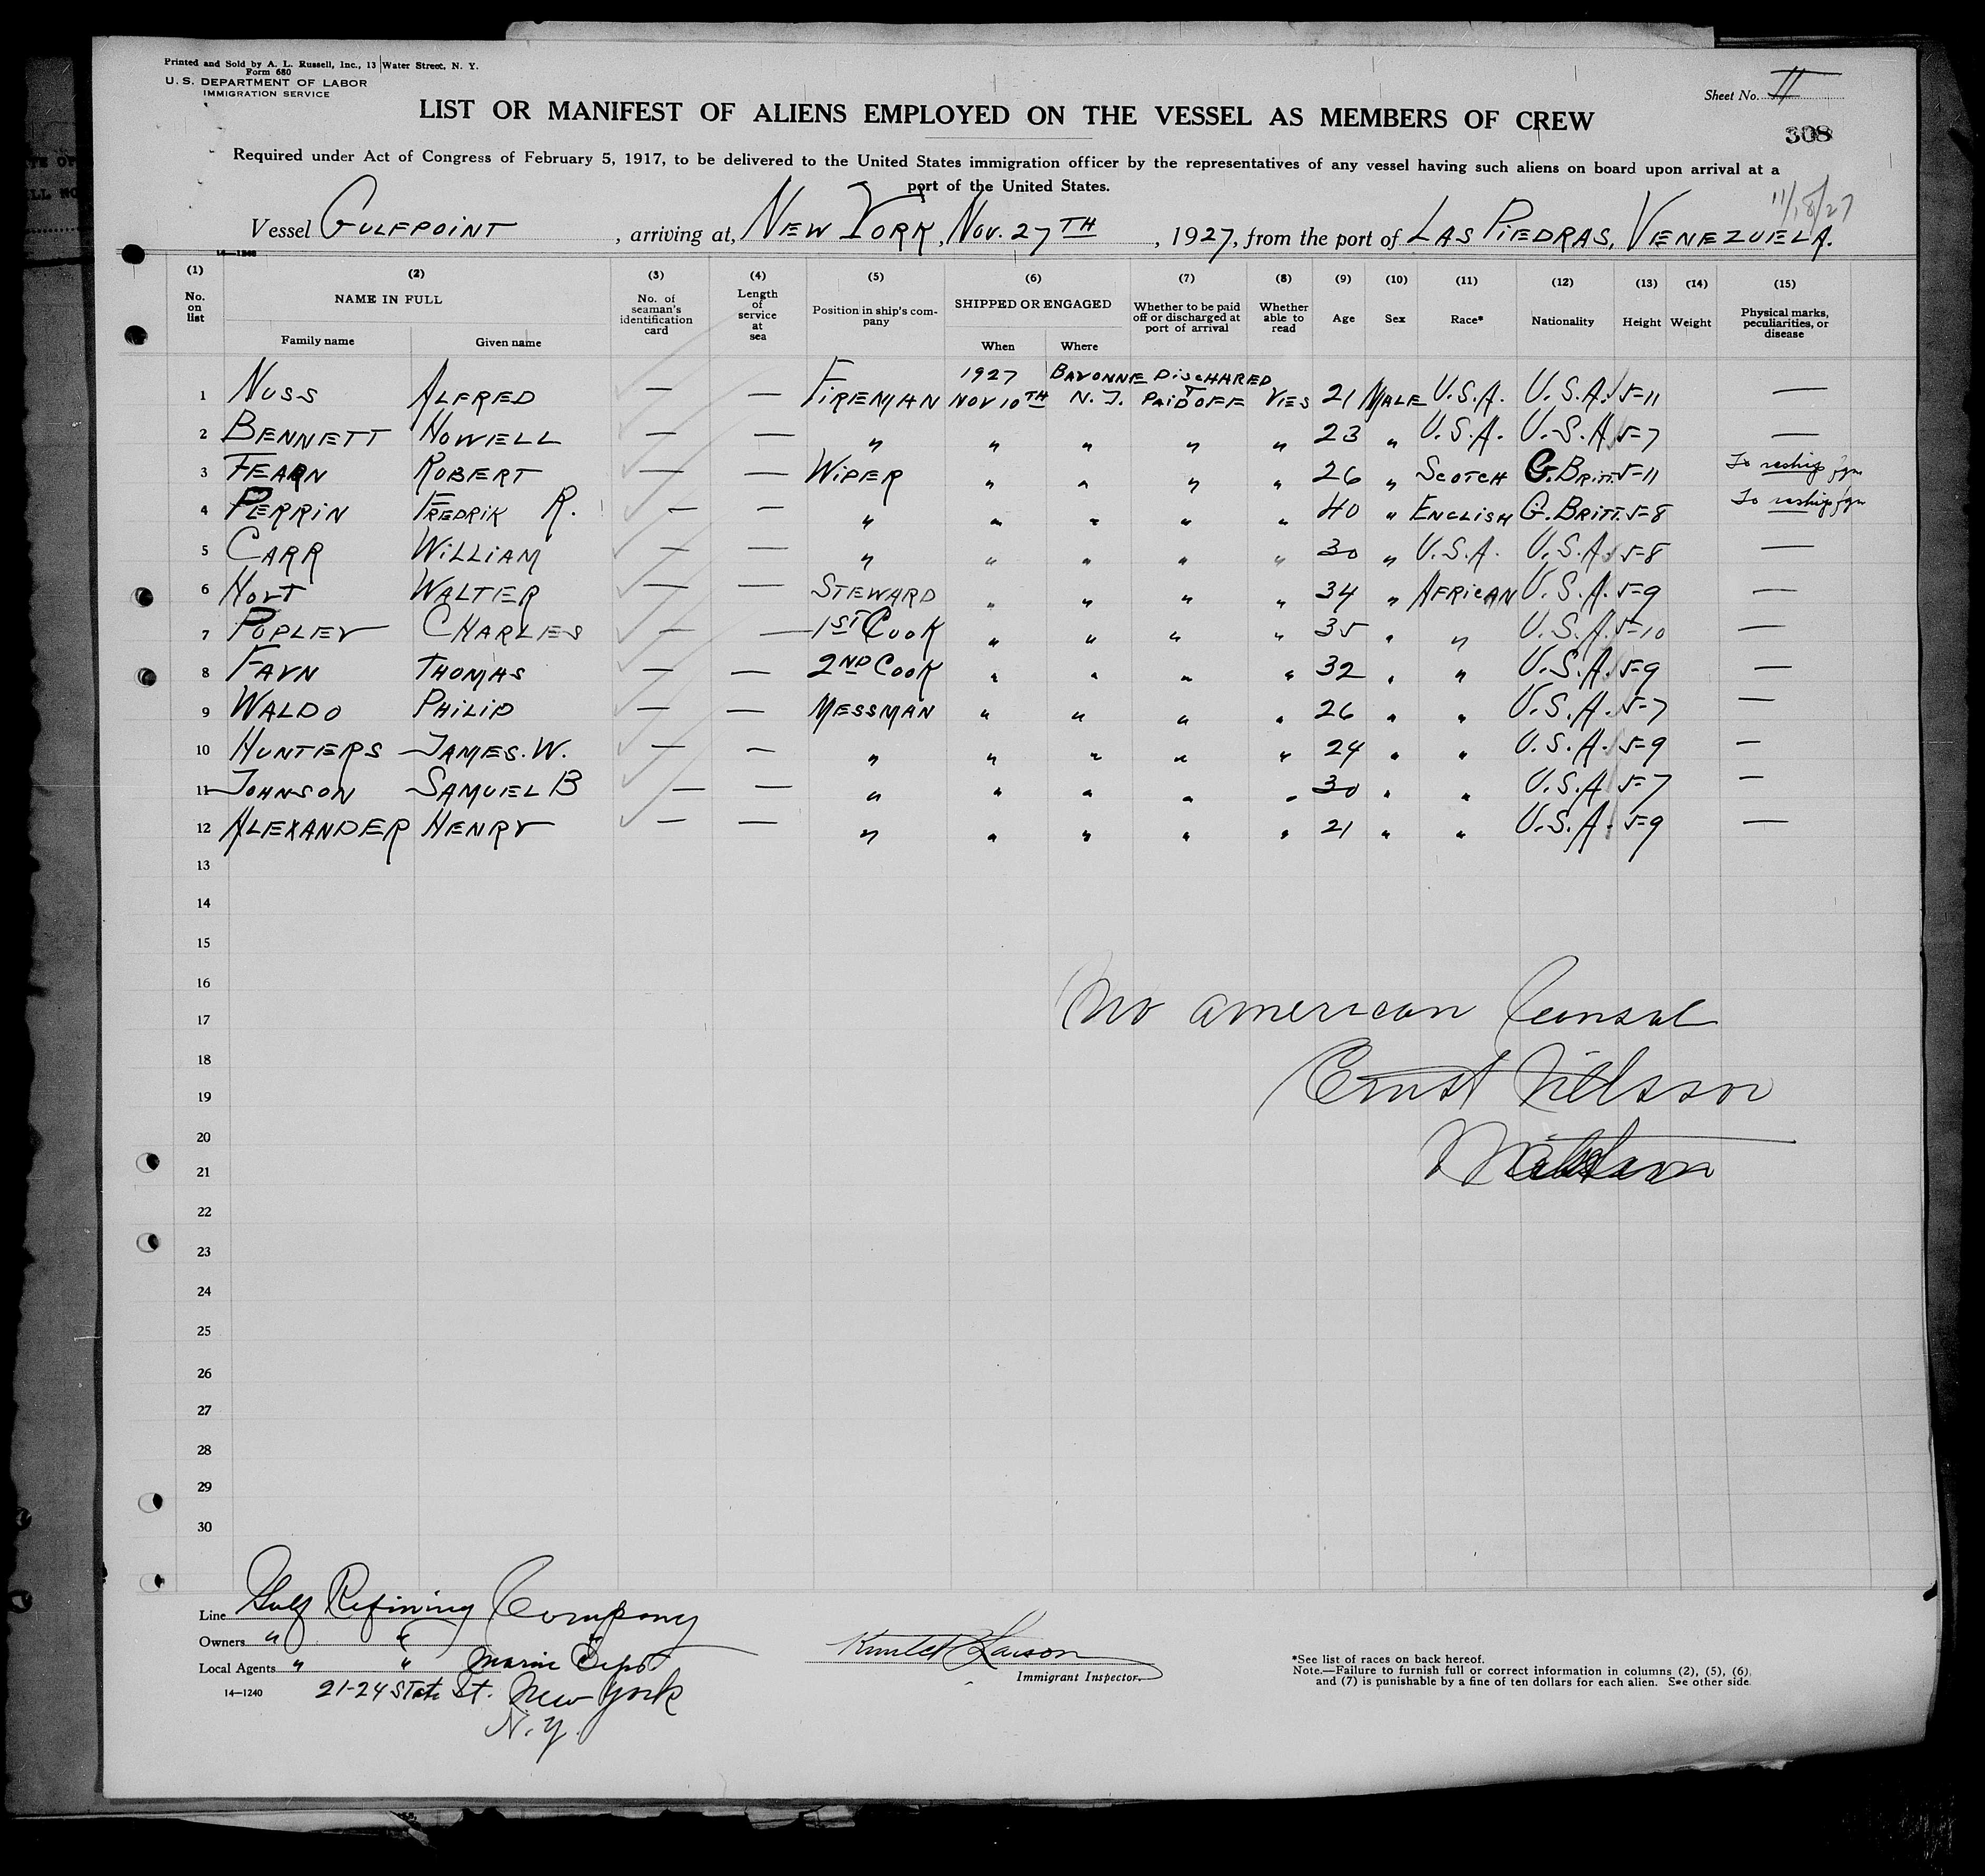 Printed and Sold by A. L. Russell, Inc., 13 Water Street, N. Y.
Form 680
U. S. DEPARTMENT OF LABOR
IMMIGRATION SERVICE
Sheet No. II
LIST OR MANIFEST OF ALIENS EMPLOYED ON THE VESSEL AS MEMBERS OF CREW
308
Required under Act of Congress of February 5, 1917, to be delivered to the United States immigration officer by the representatives of any vessel having such aliens on board upon arrival at a
port of the United States.
11/18/27
Vessel GULFPOINT, arriving at, NEW YORK, NOV. 27TH, 1927, from the port of LAS PIEDRAS, VENEZUELA.
14—1240
(1) (2) (3) (4) (5) (6) (7) (8) (9) (10) (11) (12) (13) (14) (15)
No. on list NAME IN FULL Family name Given name No. of seaman's identification card Length of service at sea Position in ship's company SHIPPED OR ENGAGED When Where Whether to be paid off or discharged at port of arrival Whether able to read Age Sex Race* Nationality Height Weight Physical marks, peculiarities, or disease
1 NUSS ALFRED — — FIREMAN 1927 NOV 10TH BAYONNE N. J. DISCHARED & PAID OFF YES 21 MALE U.S.A. U.S.A. 5=11 —
2 BENNETT HOWELL — — " " " " " 23 " U.S.A. U.S.A. 5=7 —
3 FEARN ROBERT — — WIPER " " " " 26 " SCOTCH G. BRITT. 5=11 To reship fgn
4 PERRIN FREDRIK R. — — " " " " " 40 " ENGLISH G. BRITT. 5=8 To reship fgn
5 CARR WILLIAM — — " " " " " 30 " U.S.A. U.S.A. 5=8 —
6 HOYT WALTER — — STEWARD " " " " 34 " AFRICAN U.S.A. 5=9 —
7 POPLEY CHARLES — — 1ST COOK " " " " 35 " " U.S.A. 5=10 —
8 FAYN THOMAS — — 2ND COOK " " " " 32 " " U.S.A. 5=9 —
9 WALDO PHILIP — — MESSMAN " " " " 26 " " U.S.A. 5=7 —
10 HUNTERS JAMES. W. — — " " " " " 24 " " U.S.A. 5=9 —
11 JOHNSON SAMUEL B — — " " " " " 30 " " U.S.A. 5=7 —
12 ALEXANDER HENRY — — " " " " " 21 " " U.S.A. 5=9 —
13
14
15
16
No american Consul
17
18
Ernst Nilsson
19
20
21
22
23
24
25
26
27
28
29
30
Line Gulf Refining Company
Owners " " "
Local Agents " " Marine Dept
14—1240
21-24 State St. New York
N. Y.
Larson
Immigrant Inspector.
*See list of races on back hereof.
Note.—Failure to furnish full or correct information in columns (2), (5), (6),
and (7) is punishable by a fine of ten dollars for each alien. See other side.